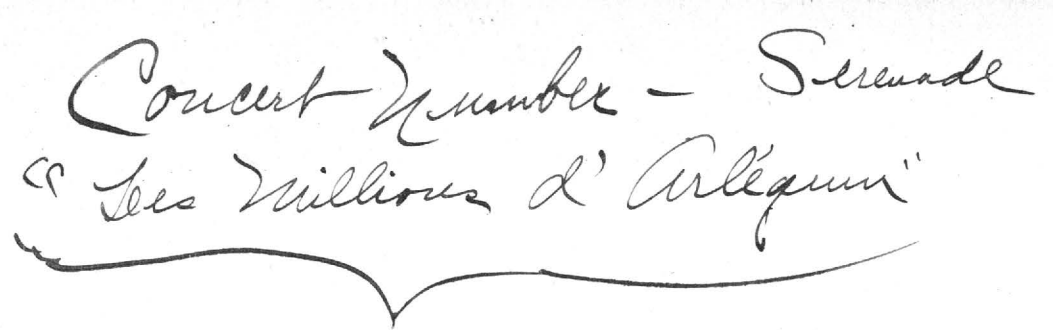 Concert Number – Serenade
"Les Millions d' Arléquin"